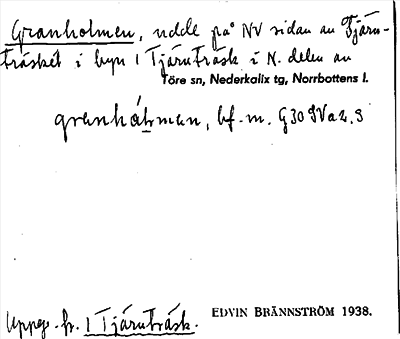 Granholmen, udde på NV sidan av Tjärn-
träsket i byn 1 Tjärnträsk i N. delen av
Töre sn, Nederkalix tg, Norrbottens l.
granhå̀lman, bf. m. G30 IV a 2. 3
Uppg. fr. 1 Tjärnträsk.
EDVIN BRÄNNSTRÖM 1938.